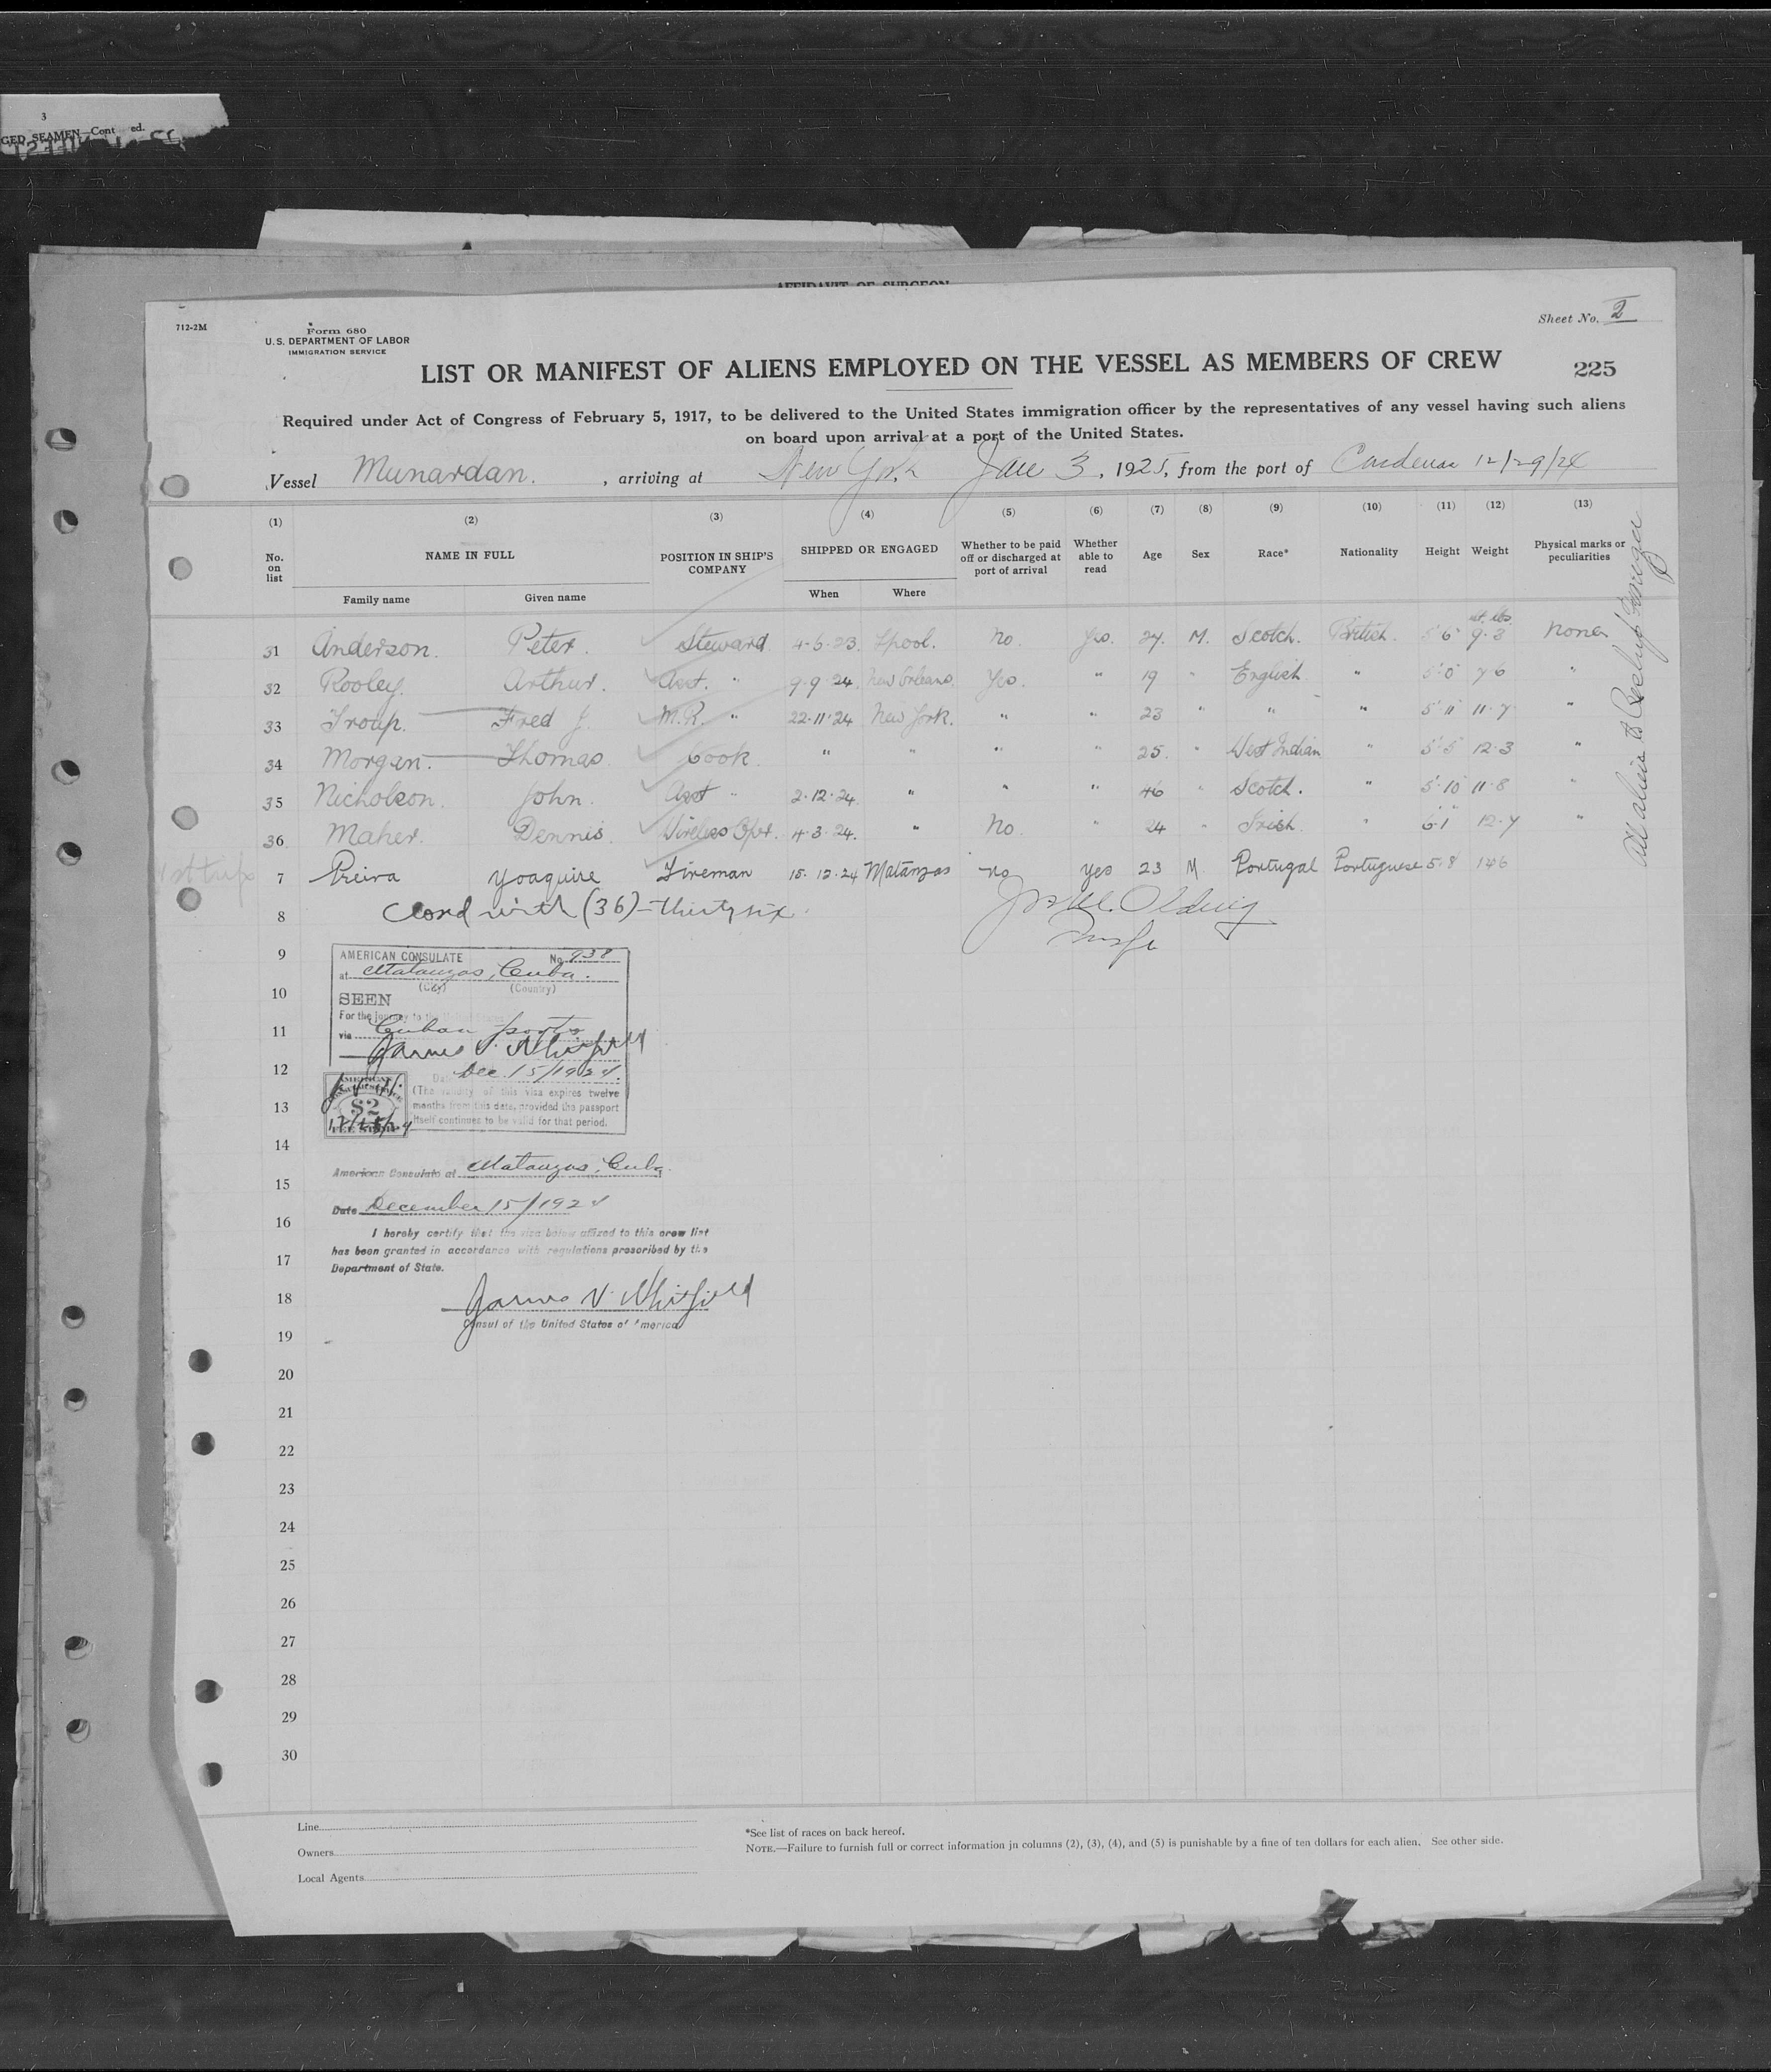 3
GED SEAMEN—Cont ed.
AFFIDAVIT OF SURGEON
712-2M
Form 680
U. S. DEPARTMENT OF LABOR
IMMIGRATION SERVICE
Sheet No. 2
LIST OR MANIFEST OF ALIENS EMPLOYED ON THE VESSEL AS MEMBERS OF CREW
225
Required under Act of Congress of February 5, 1917, to be delivered to the United States immigration officer by the representatives of any vessel having such aliens
on board upon arrival at a port of the United States.
Vessel Munardan. , arriving at New York Jan 3, 1925, from the port of Cardenas 12/29/24
(1) (2) (3) (4) (5) (6) (7) (8) (9) (10) (11) (12) (13)
No. on list NAME IN FULL POSITION IN SHIP'S COMPANY SHIPPED OR ENGAGED Whether to be paid off or discharged at port of arrival Whether able to read Age Sex Race* Nationality Height Weight Physical marks or peculiarities
Family name Given name When Where
st. lbs.
31 Anderson. Peter. Steward 4-5-23. Lpool. No. Yes. 27. M. Scotch. British. 5'6" 9-3 None
32 Rooley. Arthur. Asst. " 9-9-24. New Orleans. Yes. " 19 " English. " 5'5" 7-6 "
33 Troup. Fred J. M.R. " 22-11-24 New York. " " 23 " " " 5'11" 11-7 "
34 Morgan. Thomas. Cook. " " " " 25. " West Indian " 5'5" 12-3 "
35 Nicholson. John. Asst " 2-12-24. " " " 46 " Scotch. " 5'10" 11-8 "
36 Maher. Dennis. Wireless Optr. 4-3-24. " No. " 24 " Irish. " 6'1" 12-7 "
1st trip 7 Preira Yoaquire Fireman 15-12-24 Matanzas no yes 23 M Portugal Portuguese 5-8 146
8 Closed with (36)-thirty six.
9
AMERICAN CONSULATE No. 938
at Matanzas, Cuba.
(City) (Country)
10
SEEN
For the journey to the United States
11
via Cuban ports
James V. Whitfield
12
Date Dec. 15/1924.
(The validity of this visa expires twelve
13
months from this date, provided the passport
itself continues to be valid for that period.
AMERICAN
$2
12/15/24
FEE STAMP
14
American Consulate at Matanzas, Cuba.
15
Date December 15/1924
16
I hereby certify that the visa below affixed to this crew list
has been granted in accordance with regulations prescribed by the
17
Department of State.
18
James V. Whitfield
Consul of the United States of America
19
20
21
22
23
24
25
26
27
28
29
30
Line
Owners
Local Agents
*See list of races on back hereof.
NOTE.—Failure to furnish full or correct information in columns (2), (3), (4), and (5) is punishable by a fine of ten dollars for each alien. See other side.